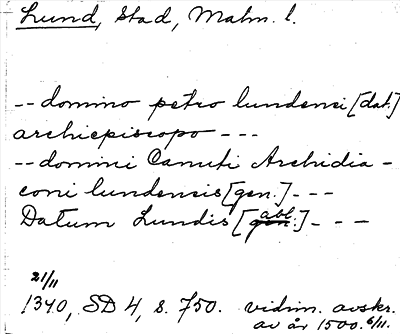 Lund, Stad, Malm. l.
-- domino petro lundensi [dat.]
archiepiscopo ---
-- domini Canuti Archidia-
coni lundensis [gen.] ---
Datum Lundis [gen. abl.] ---
21/11
1340, SD 4, s. 750. vidim. avskr.
av år 1500. 6/11.